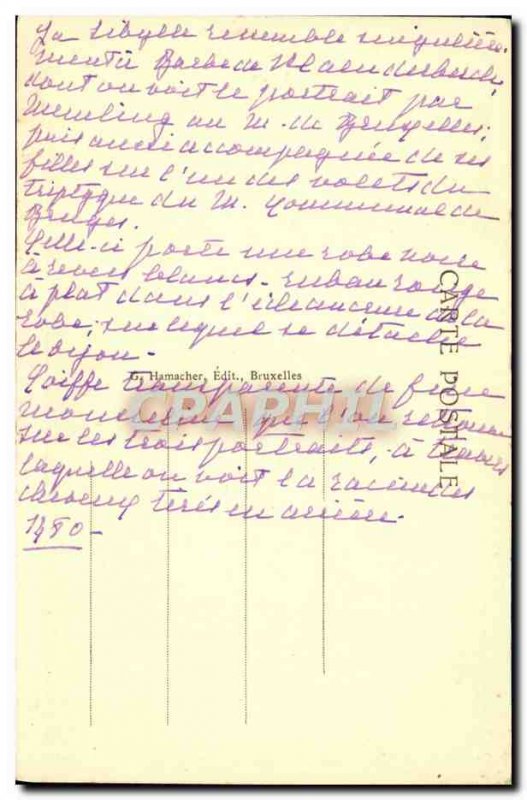 La Sibylle ressemble singulière
ment à Barbe de Vlaenderberch,
dont on voit le portrait par
Memling au M. de Bruxelles;
puis aussi accompagnée de ses
filles sur l'un des volets du
triptyque du M. Communal de
Bruges.
Celle-ci porte une robe noire
à revers blancs. ruban rouge
à plat dans l'échancrure de la
robe, sur lequel se détache
le bijou.
G. Hamacher, Édit., Bruxelles
Coiffe transparente de fine
mousseline que l'on retrouve
sur les trois portraits, à travers
laquelle on voit la racine des
cheveux tirés en arrière.
1480
CARTE POSTALE
CPAPHIL